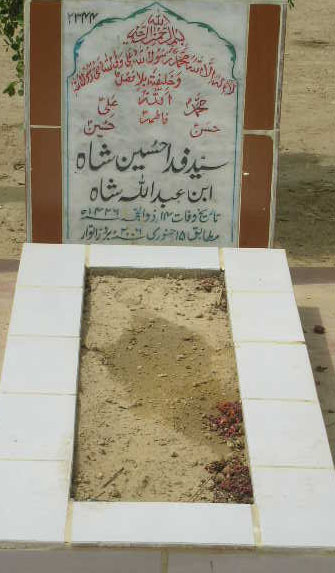 ۲۳۴۴
بسم اللہ الرحمن الرحیم
لا الہ الا اللہ محمد رسول اللہ علی ولی اللہ وصی رسول اللہ
وخلیفتہ بلا فصل
محمد اللہ علی
حسن فاطمہ حسین
سید فدا حسین شاہ
ابن عبداللہ شاہ
تاریخ وفات ۱۴ ذوالحج ۱۴۲۶ھ
مطابق ۱۵ جنوری ۲۰۰۶ بروز اتوار